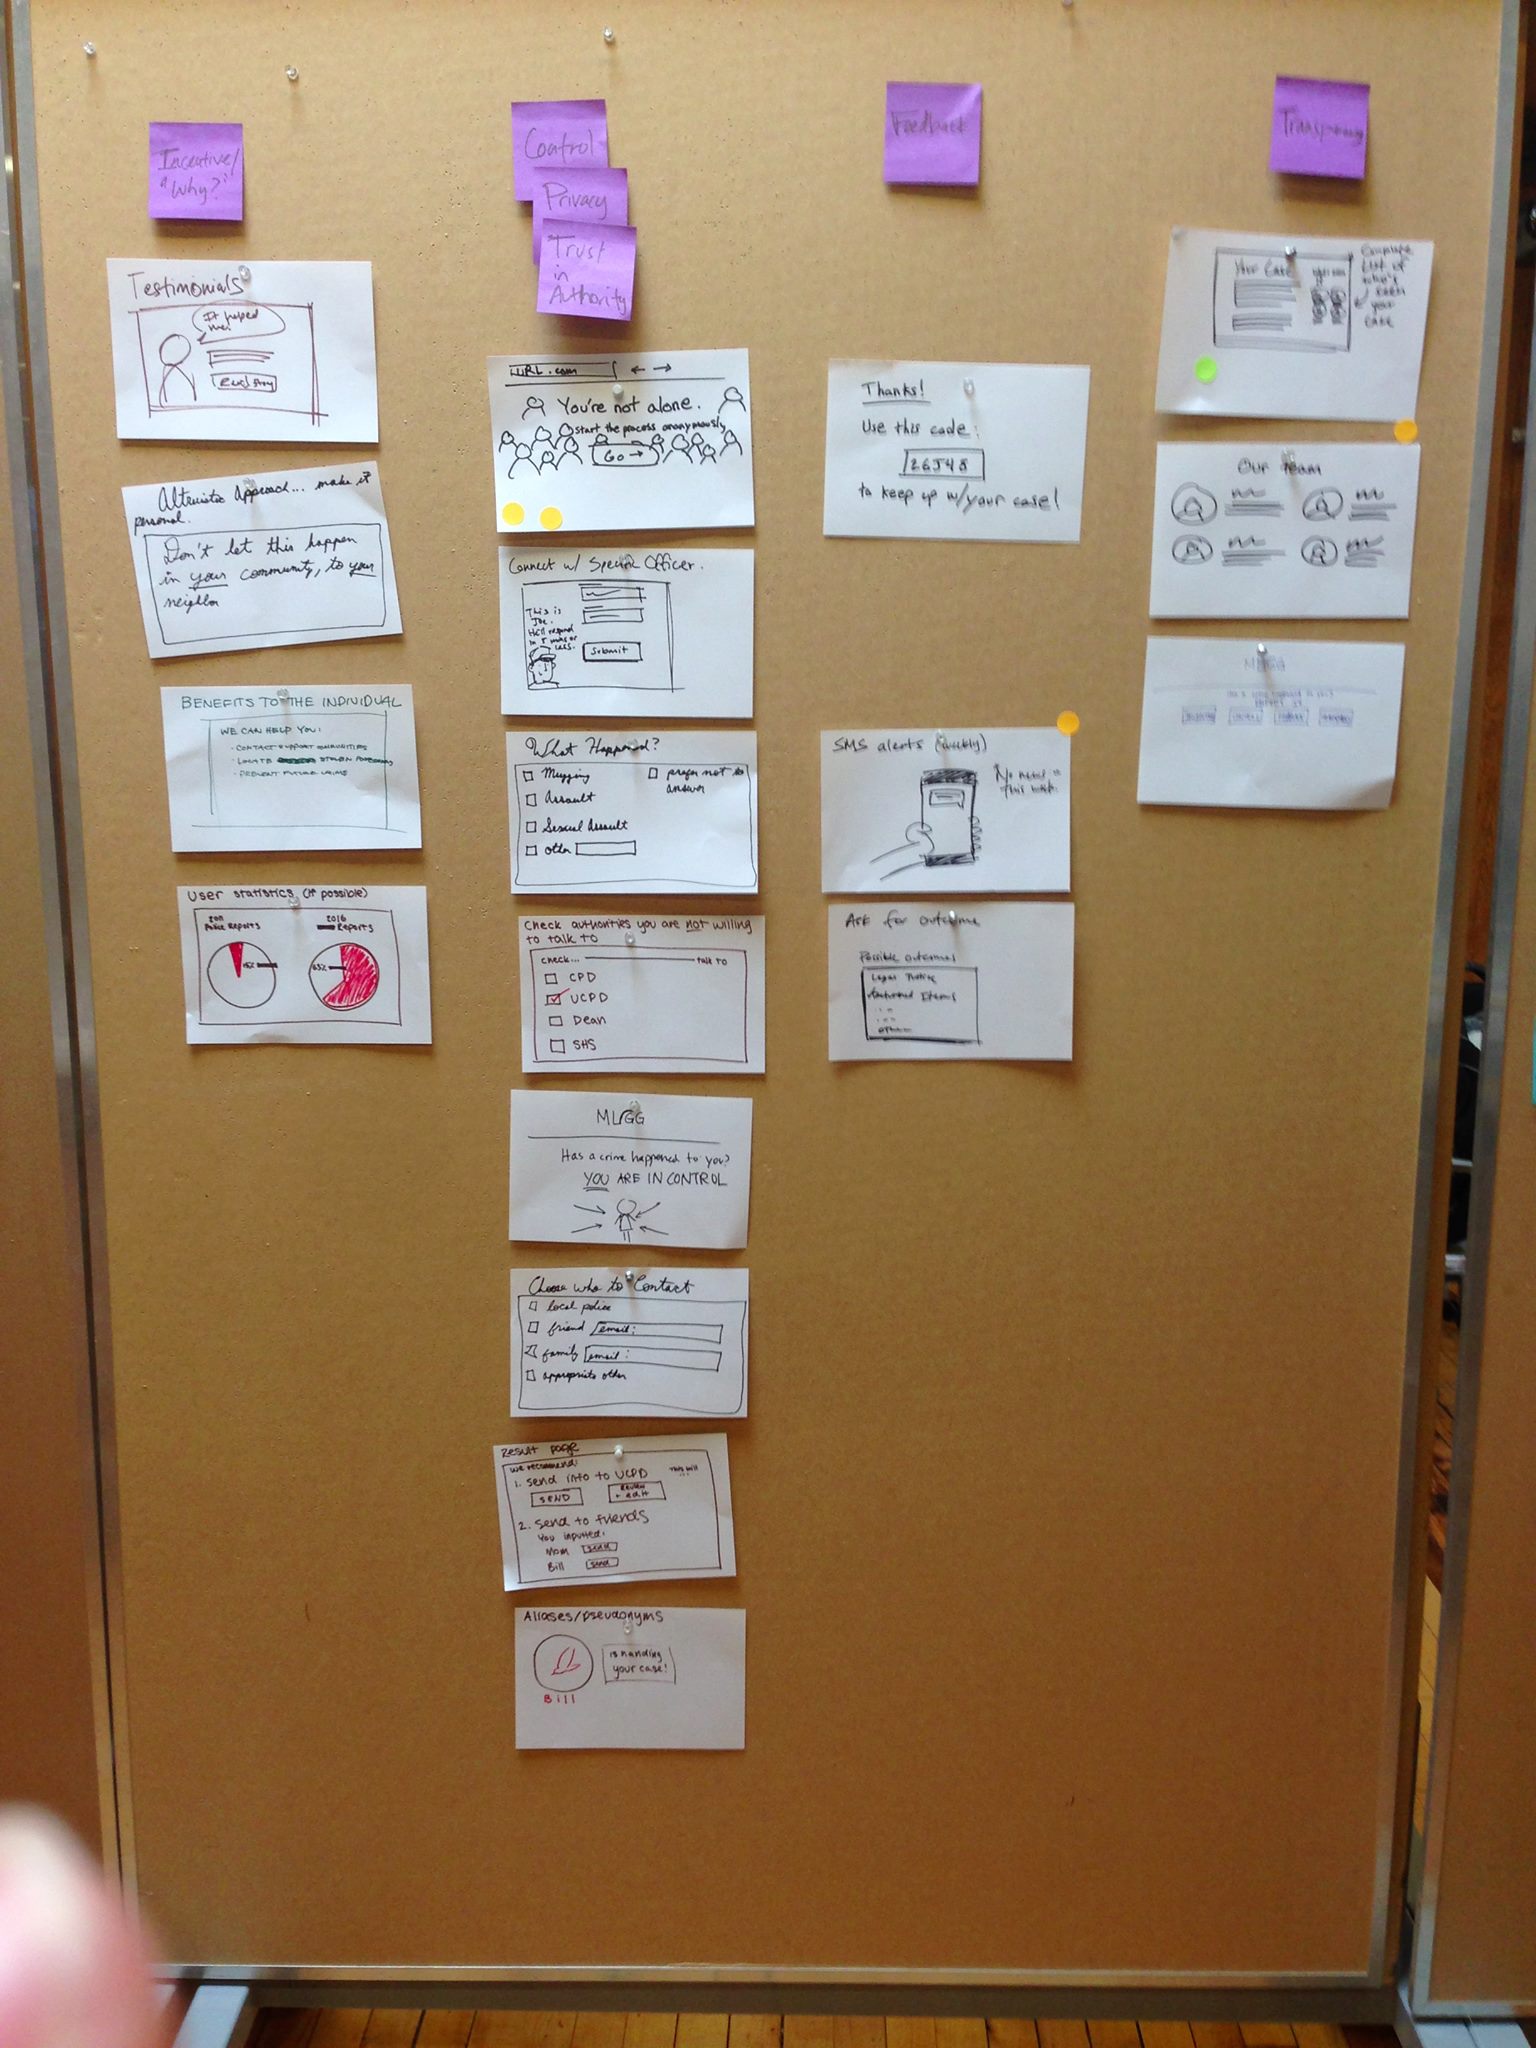 Incentive/
"Why?"
Testimonials
It helped
me!
Read Story
Altruistic Approach... make it
personal.
Don't let this happen
in your community, to your
neighbor
BENEFITS TO THE INDIVIDUAL
WE CAN HELP YOU:
· CONTACT SUPPORT COMMUNITIES
· LOCATE STOLEN POSSESSIONS
· PREVENT FUTURE CRIME
User statistics (if possible)
2011
Police Reports
2016
Reports
15%
65%
Control
Privacy
Trust
in
Authority
URL.com
You're not alone.
Start the process anonymously
Go →
Connect w/ Specific Officer.
This is
Joe.
He'll respond
in 5 mins or
less.
Submit
What Happened?
Mugging
prefer not to
answer
Assault
Sexual Assault
other
Check authorities you are not willing
to talk to
check...
talk to
CPD
UCPD
Dean
SHS
MUGG
Has a crime happened to you?
YOU ARE IN CONTROL
Choose who to Contact
local police
friend email:
family email:
appropriate other
Result page
We recommend:
This will
...
1. send info to UCPD
SEND
Review
+ edit
2. send to friends
You inputted:
Mom send
Bill send
Aliases/pseudonyms
is handling
your case!
Bill
Feedback
Thanks!
Use this code:
26J48
to keep up w/your case!
SMS alerts (weekly)
No news =
this week.
Ask for outcome
Possible outcomes
Legal Justice
Returned Items
...
...
other
Transparency
Your Case
Complete
List of
who's
seen
your
case
Our team
MUGG